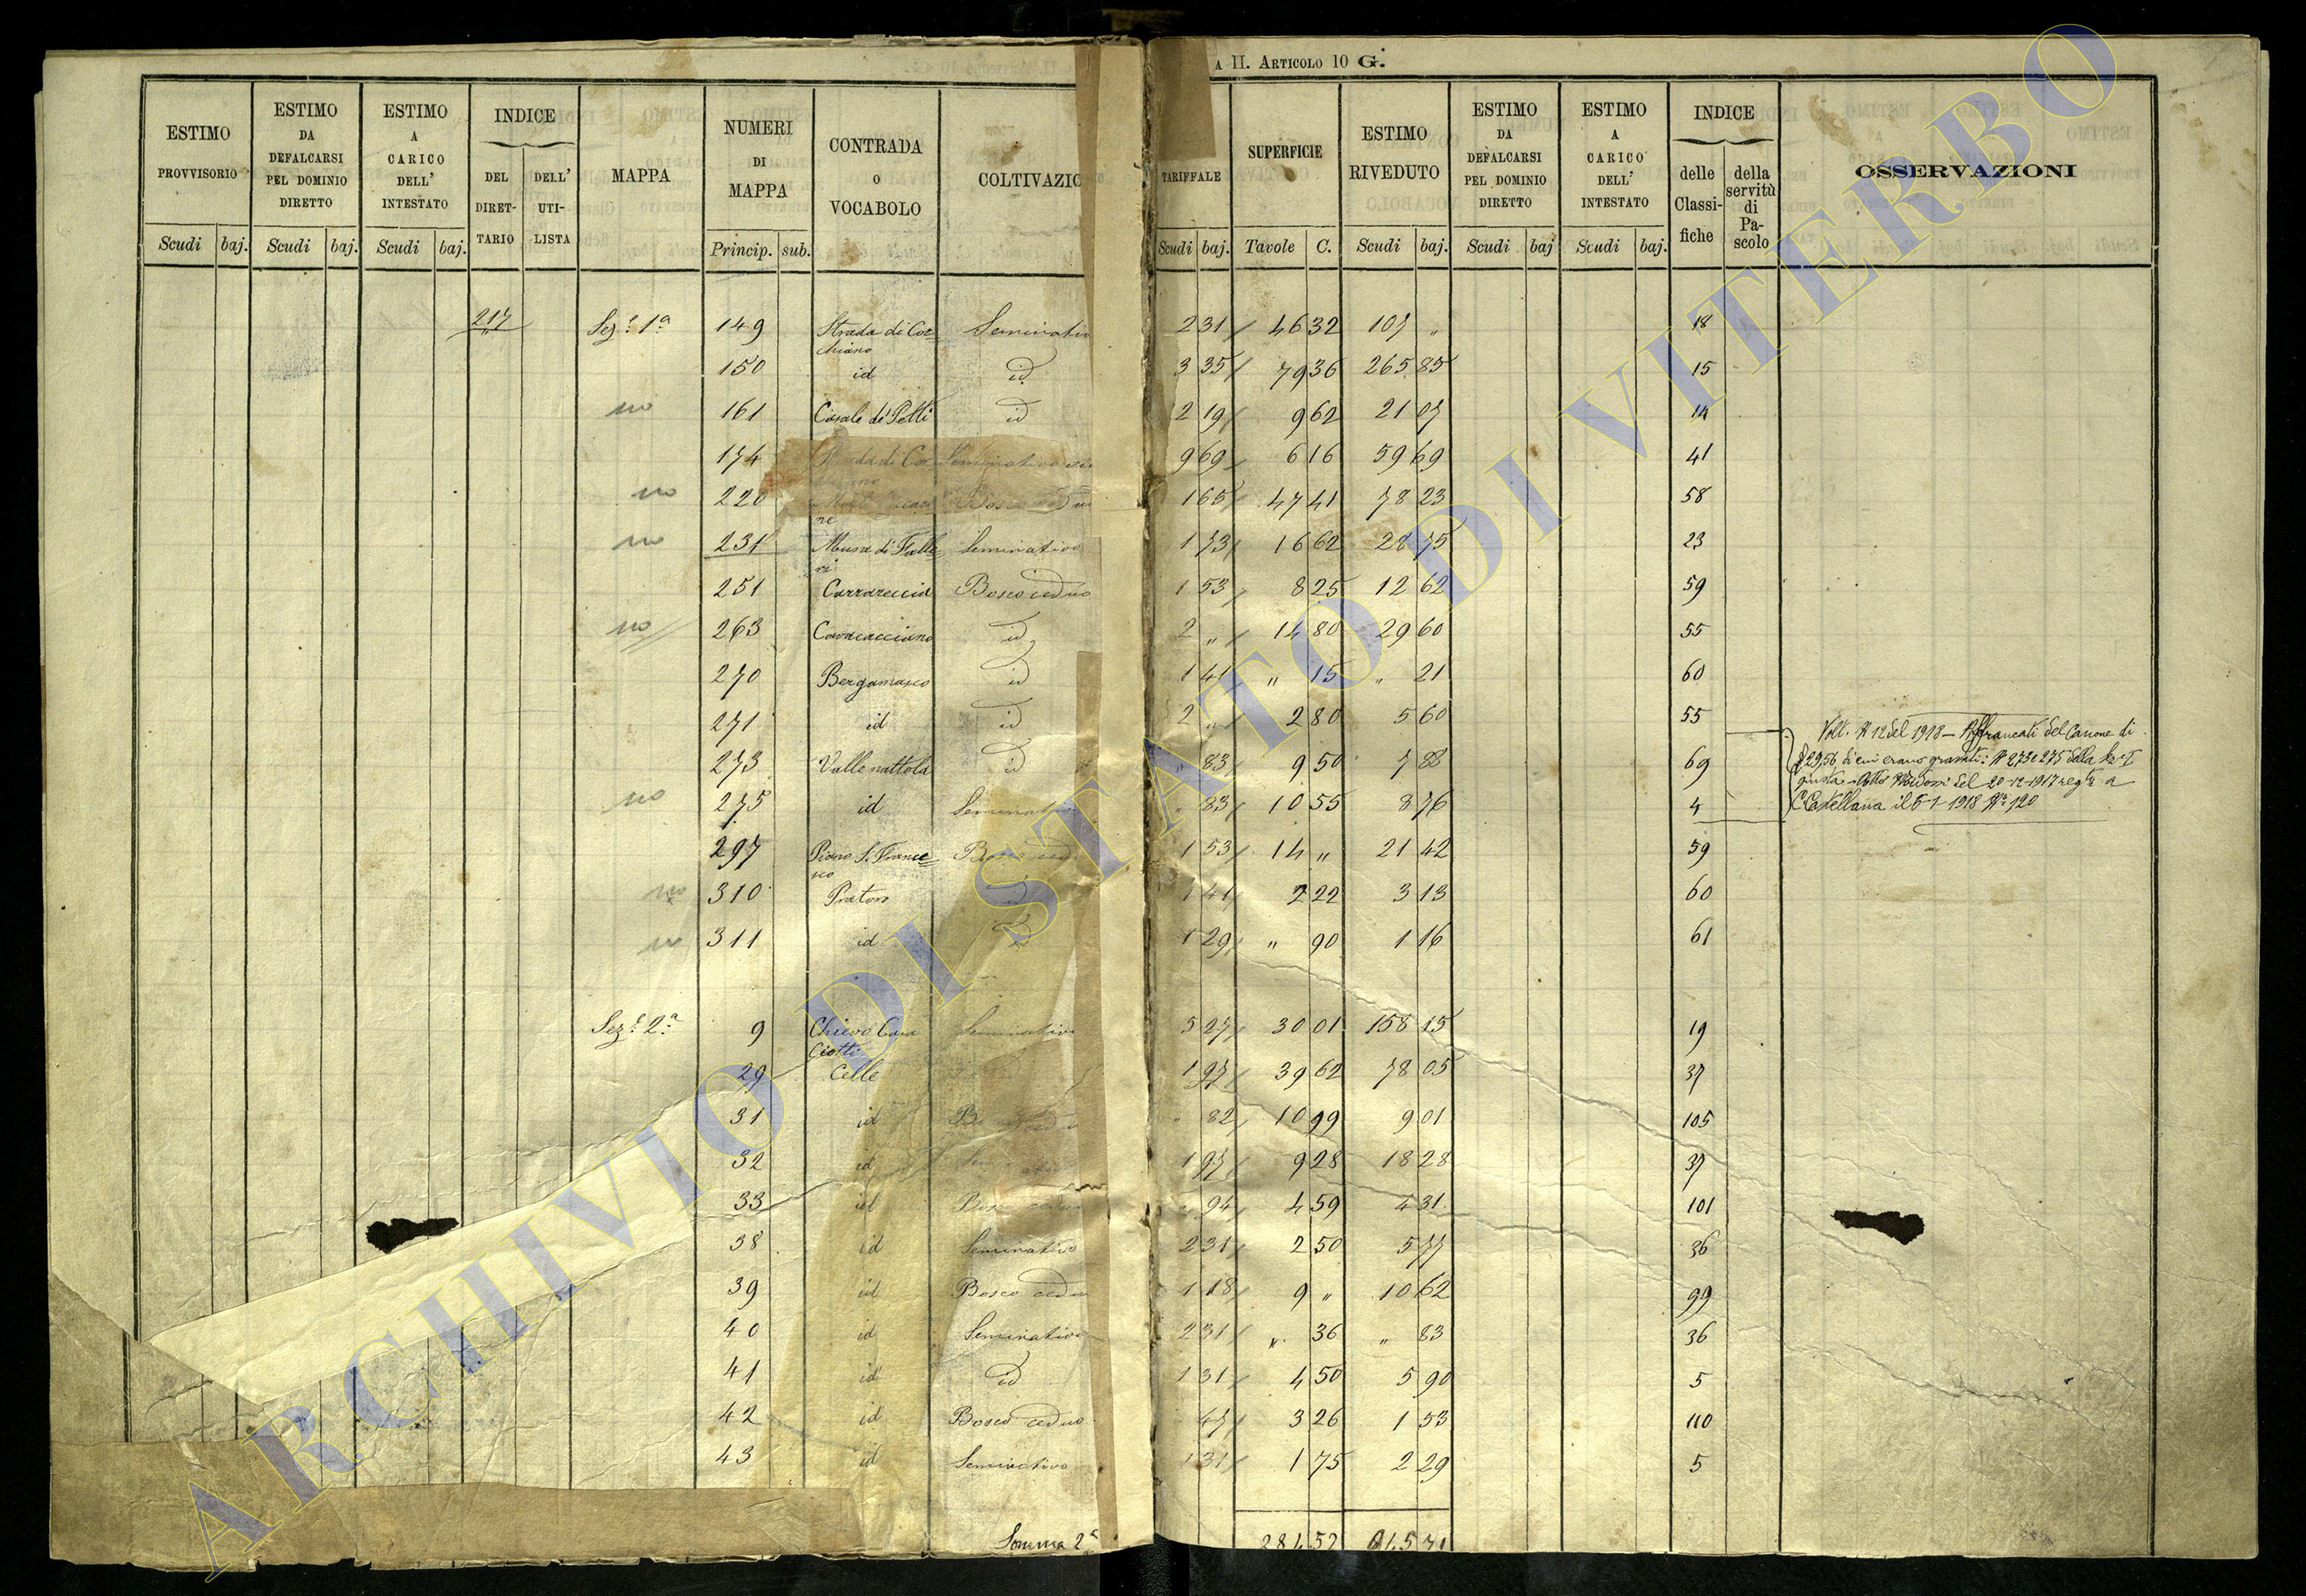 A II. ARTICOLO 10 G.
ESTIMO PROVVISORIO
ESTIMO DA DEFALCARSI PEL DOMINIO DIRETTO
ESTIMO A CARICO DELL' INTESTATO
INDICE
DEL DIRET-TARIO
DELL' UTI-LISTA
MAPPA
NUMERI DI MAPPA
CONTRADA O VOCABOLO
COLTIVAZIO
TARIFFALE
SUPERFICIE
ESTIMO RIVEDUTO
ESTIMO DA DEFALCARSI PEL DOMINIO DIRETTO
ESTIMO A CARICO DELL' INTESTATO
INDICE
delle Classi-fiche
della servitù di Pa-scolo
OSSERVAZIONI
Scudi baj. Scudi baj. Scudi baj. Princip. sub. Scudi baj. Tavole C. Scudi baj. Scudi baj Scudi baj.
217 Sez.e 1a 149 Strada di Cor= Seminativo 2 31 46 32 107 " 18
chiano
150 id id 3 35 79 36 265 85 15
no 161 Casale de' Petti id 2 19 9 62 21 07 14
174 9 69 6 16 59 69 41
no 220 Bosco 1 65 47 41 78 23 58
ne
no 231 di Falle Seminativo 1 73 16 62 28 75 23
ri
251 Carrareccia Bosco ceduo 1 53 8 25 12 62 59
no 263 Cavacacciano id 2 " 14 80 29 60 55
270 Bergamasco id 1 41 " 15 " 21 60
271 id id 2 " 2 80 5 60 55
273 Valle nattola id " 83 9 50 7 88 69
no 275 id Seminativo " 83 10 55 8 76 4
Volt. N 12 del 1918 - Affrancati del Canone di
29,56 di cui erano gravati i N 273 e 275 della
giusta Atto del 20-12-1917 reg a
C. Castellana il 5-1-1918 N. 120
297 Piano S. France= Bosco ced 1 53 14 " 21 42 59
sco
no 310 Pratoro id 1 41 2 22 3 13 60
no 311 id id 1 29 " 90 1 16 61
Sez.e 2.a 9 Chievo Seminativo 5 27 30 01 158 15 19
Ciotti
29 Celle 1 97 39 62 78 05 37
31 id " 82 10 99 9 01 105
32 id 1 97 9 28 18 28 37
33 id Bosco ceduo " 94 4 59 4 31 101
38 id Seminativo 2 31 2 50 5 77 36
39 id Bosco ceduo 1 18 9 " 10 62 99
40 id Seminativo 2 31 " 36 " 83 36
41 id id 1 31 4 50 5 90 5
42 id Bosco ceduo 47 3 26 1 53 110
43 id Seminativo 1 31 1 75 2 29 5
Somma 2a
ARCHIVIO DI STATO DI VITERBO